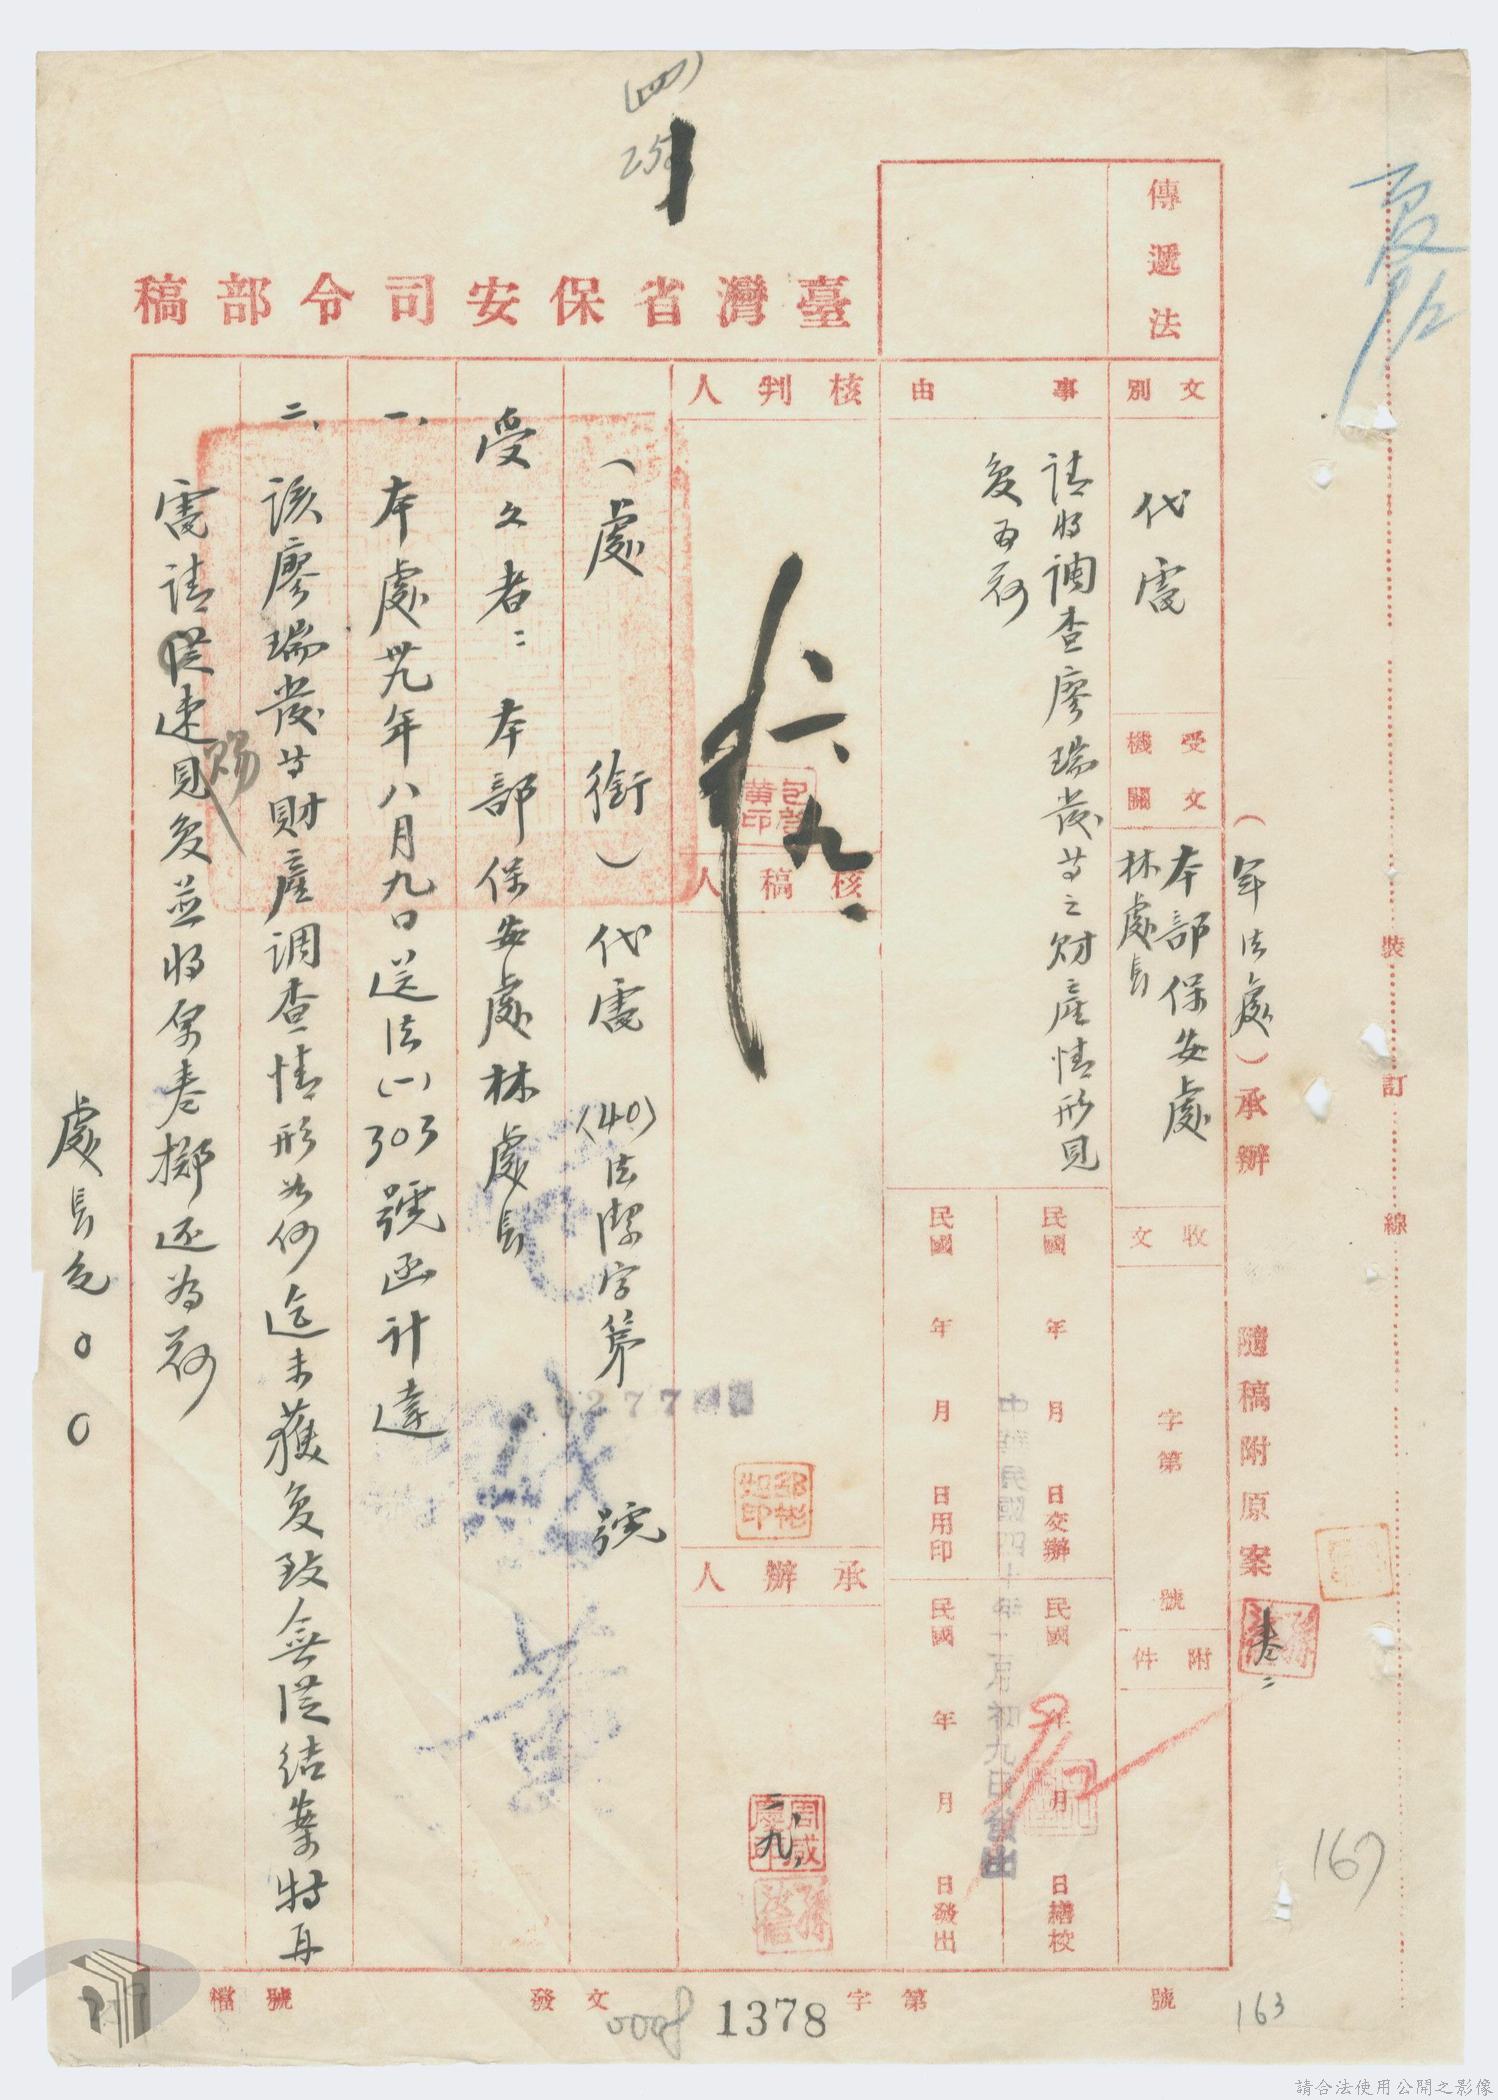 (四)
臺灣省保安司令部稿
傳遞法
(軍法處)承辦
隨稿附原案
裝訂線
文別
代電
受文機關
本部保安處
林處長
收文
字第
號
附件
事由
請將調查廖瑞發等之財產情形見
復為荷
民國 年 月 日交辦
民國 年 月 日繕校
民國 年 月 日用印
民國 年 月 日發出
中華民國四十年二月初九日發出
核判人
核稿人
承辦人
邵彬如印
周咸慶印
二、九、
(處 銜)代電 (40)法潔字第 號
受文者：本部保安處林處長
一、本處卅九年八月九日送法(一)303號函計達
二、該廖瑞發等財產調查情形如何迄未獲復致無從結案特再
電請從速見賜復並將原卷擲還為荷
處長包○○
檔號
發文
字第
號
0008
1378
167
163
請合法使用公開之影像